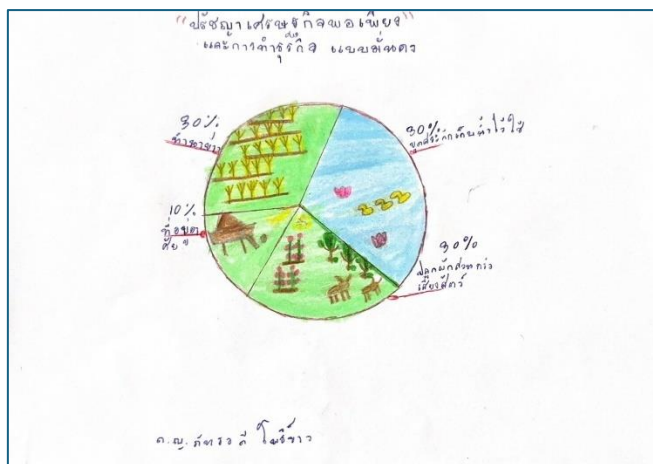 "ปรัชญาเศรษฐกิจพอเพียง"
และการทำธุรกิจ แบบมั่นคง
30%
ทำนาข้าว
30%
ขุดสระกักเก็บน้ำไว้ใช้
10%
ที่อยู่อา
ศัย
30%
ปลูกผักสวนครัว
เลี้ยงสัตว์
ด.ญ. ภัทรวดี โพธิ์ขาว